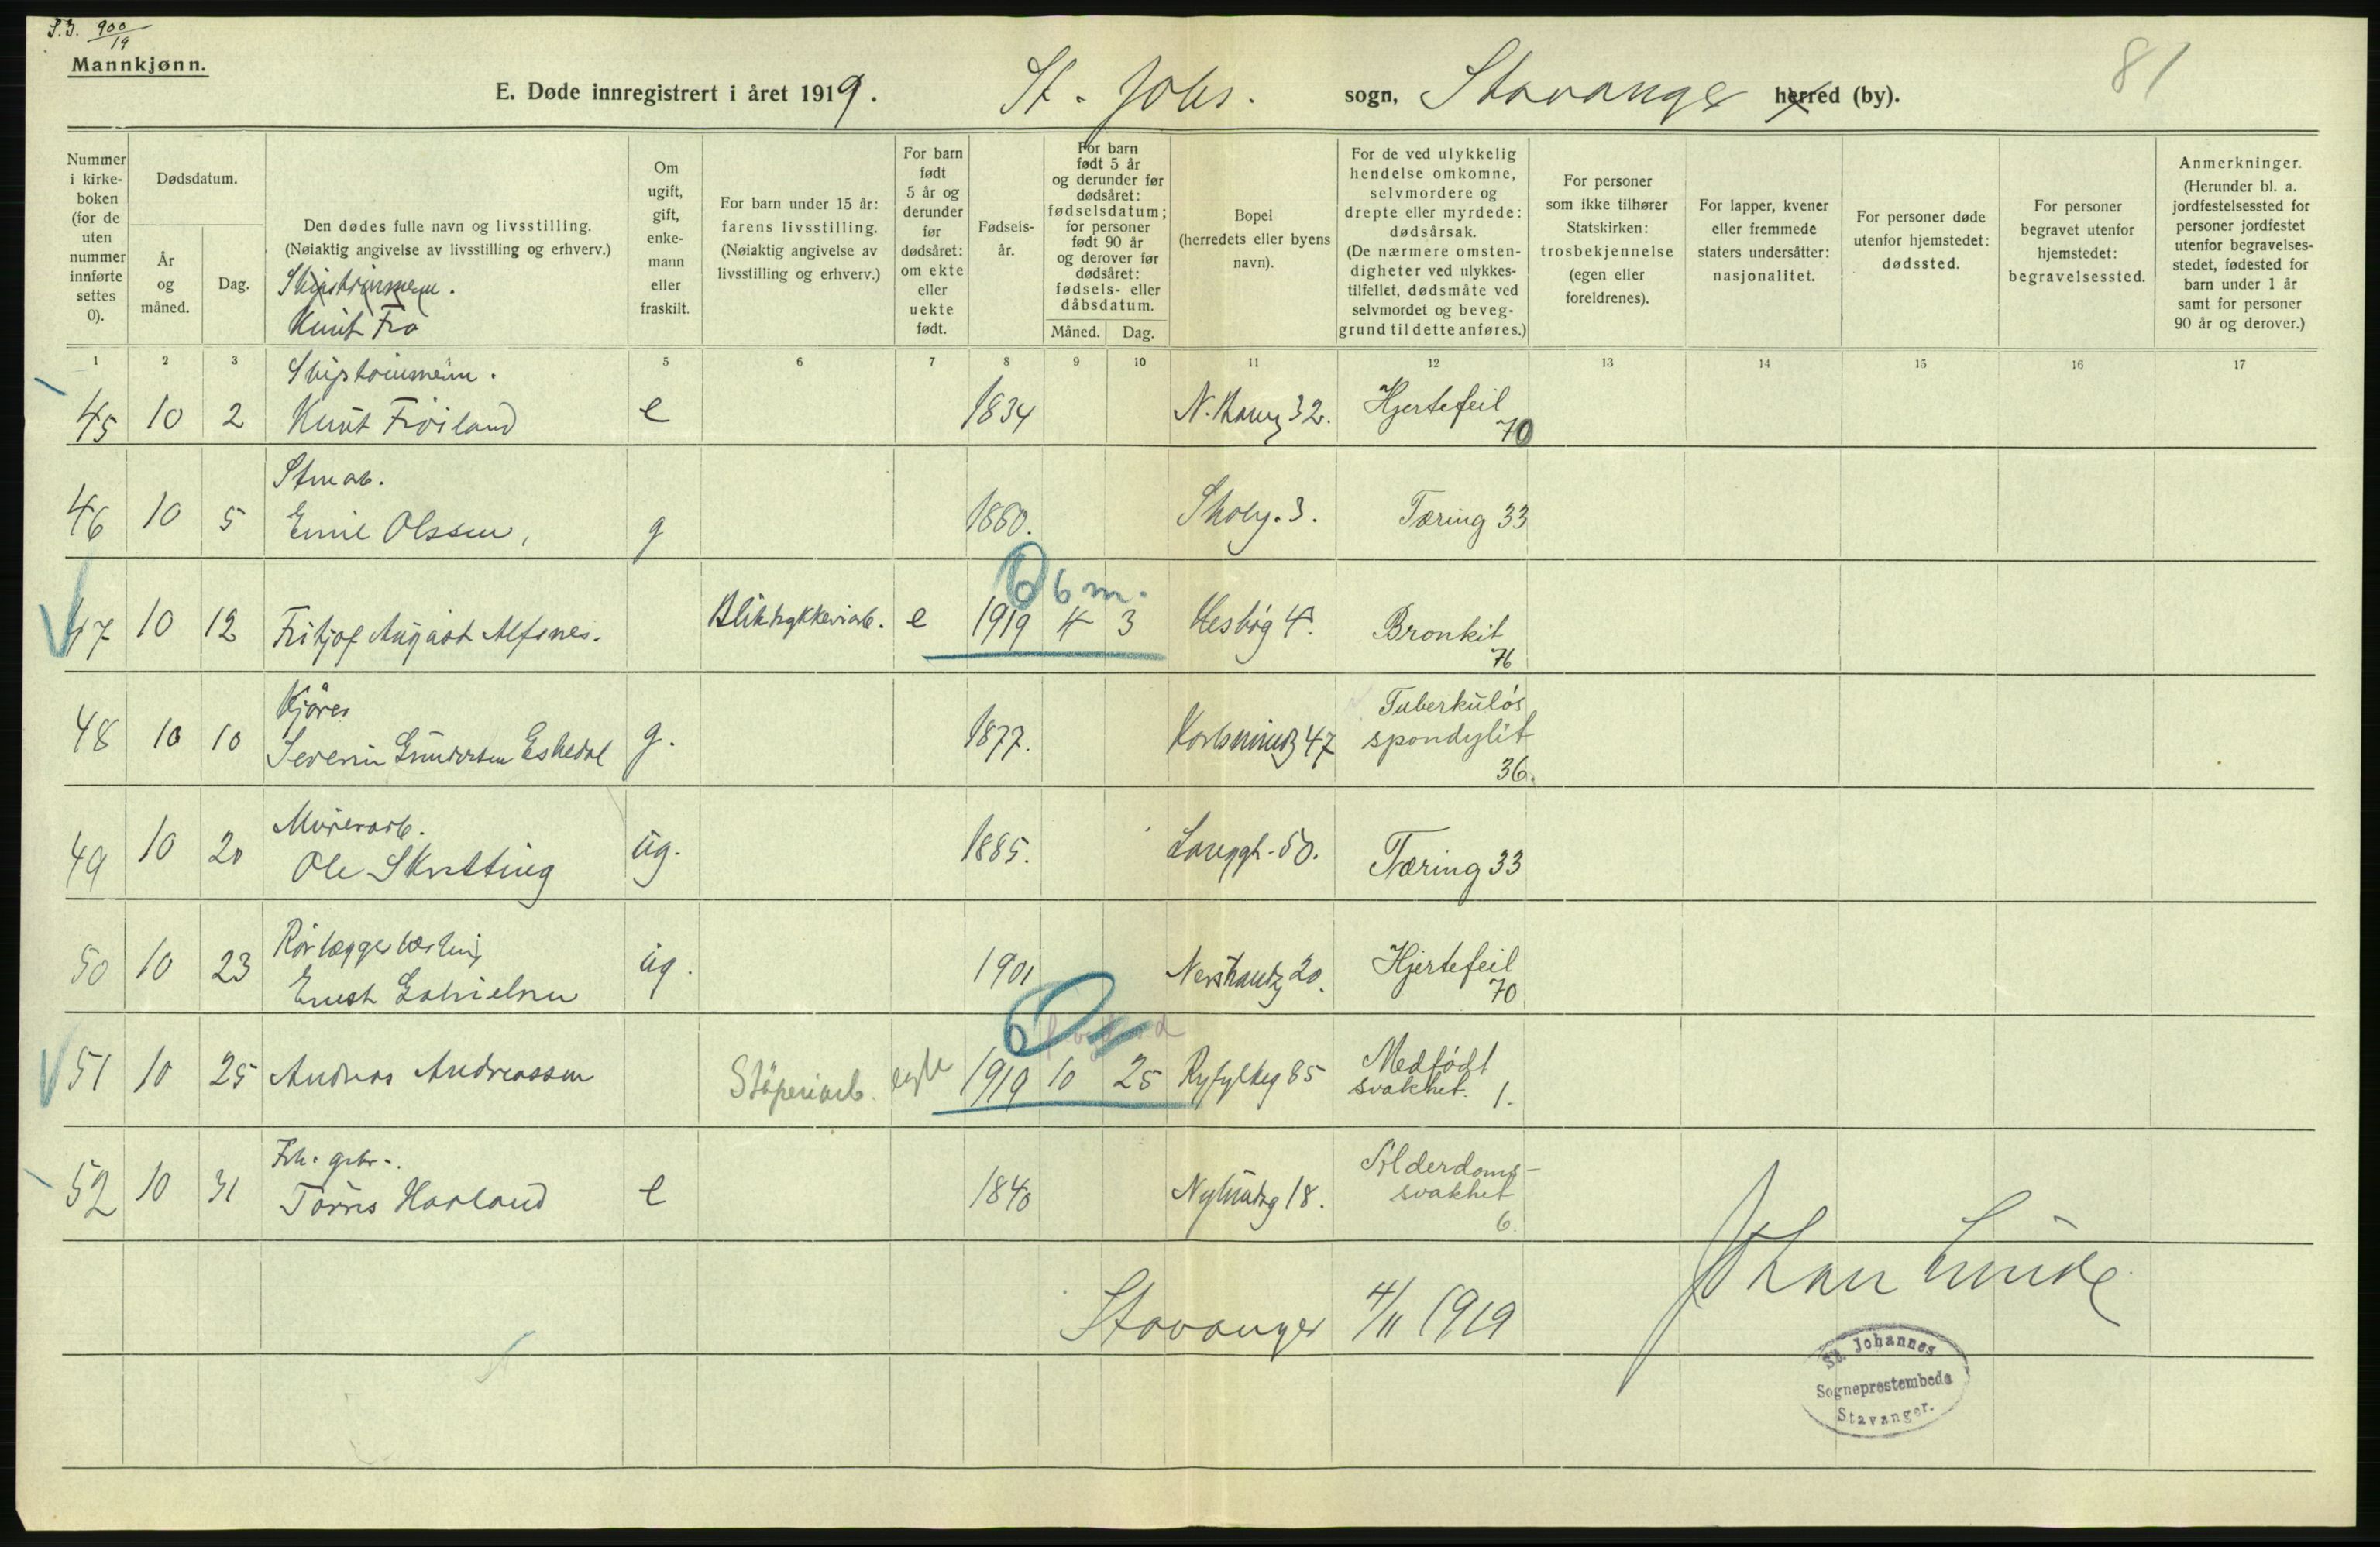 S.J. 900/19
Mannkjønn.
81
E. Døde innregistrert i året 1919. St. Johs. sogn, Stavanger herred (by).
Nummer i kirkeboken (for de uten nummer innførte settes 0).
Dødsdatum.
År og måned.
Dag.
Den dødes fulle navn og livsstilling.
(Nøiaktig angivelse av livsstilling og erhverv.)
Knut Frø
Om ugift, gift, enkemann eller fraskilt.
For barn under 15 år: farens livsstilling. (Nøiaktig angivelse av livsstilling og erhverv.)
For barn født 5 år og derunder før dødsåret: om ekte eller uekte født.
Fødselsår.
For barn født 5 år og derunder før dødsåret: fødselsdatum; for personer født 90 år og derover før dødsåret: fødsels- eller dåbsdatum.
Måned. Dag.
Bopel (herredets eller byens navn).
For de ved ulykkelig hendelse omkomne, selvmordere og drepte eller myrdede: dødsårsak. (De nærmere omstendigheter ved ulykkestilfellet, dødsmåte ved selvmordet og beveggrund til dette anføres.)
For personer som ikke tilhører Statskirken: trosbekjennelse (egen eller foreldrenes).
For lapper, kvener eller fremmede staters undersåtter: nasjonalitet.
For personer døde utenfor hjemstedet: dødssted.
For personer begravet utenfor hjemstedet: begravelsessted.
Anmerkninger. (Herunder bl. a. jordfestelsessted for personer jordfestet utenfor begravelsesstedet, fødested for barn under 1 år samt for personer 90 år og derover.)
1 2 3 4 5 6 7 8 9 10 11 12 13 14 15 16 17
Skipstømmerm.
45 10 2 Knut Frøiland e 1834 32. Hjertefeil 70
46 10 5 Emil Olssen, g 1880. Skolg. 3. Tæring 33
6 6 m.
47 10 12 Fritjof August Alfsnes. Bliktrykkeriarb. e 1919 4 3 Hesbyg 4. Bronkit 76
Kjører
48 10 10 Severin Gundersen Eskedal g. 1877. Karlsminneg 47 Tuberkuløs spondylit 36.
Murerarb.
49 10 20 Ole Skretting ug. 1885. Langgt. 50. Tæring 33
Rørlæggerlærling
50 10 23 Ernst Gabrielsen ug. 1901 Nerstrandg 20. Hjertefeil 70
51 10 25 Andreas Andreassen Støperiarb. egte 1919 10 25 Ryfylkeg 85 Medfødt svakhet. 1.
52 10 31 Tørres Haaland e 1840 Nylundsg 18. Alderdomssvakhet 6.
Stavanger 4/11 1919
Johan Lunde
St. Johannes
Sogneprestembede
Stavanger.